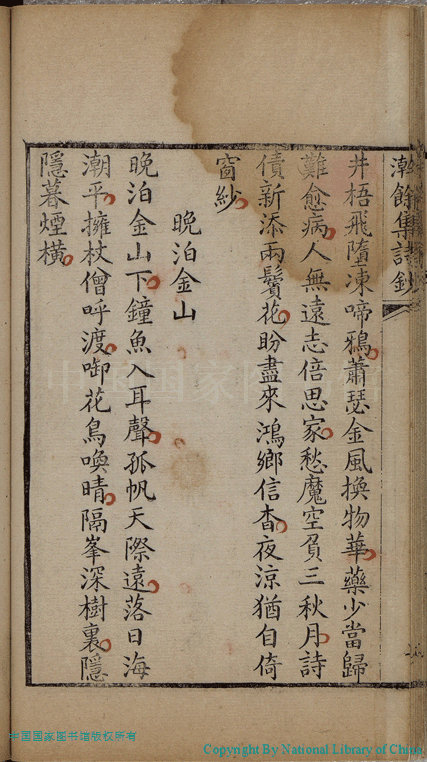 瀚餘集詩鈔
井梧飛墮凍啼鴉蕭瑟金風換物華藥少當歸
難愈病人無遠志倍思家愁魔空負三秋月詩
債新添兩鬢花盼盡來鴻鄉信杳夜涼猶自倚
窗紗
晚泊金山
晚泊金山下鐘魚入耳聲孤帆天際遠落日海
潮平擁杖僧呼渡啣花鳥喚晴隔峯深樹裏隱
隱暮煙橫
中国国家图书馆
中国国家图书馆版权所有
Copyright By National Library of China